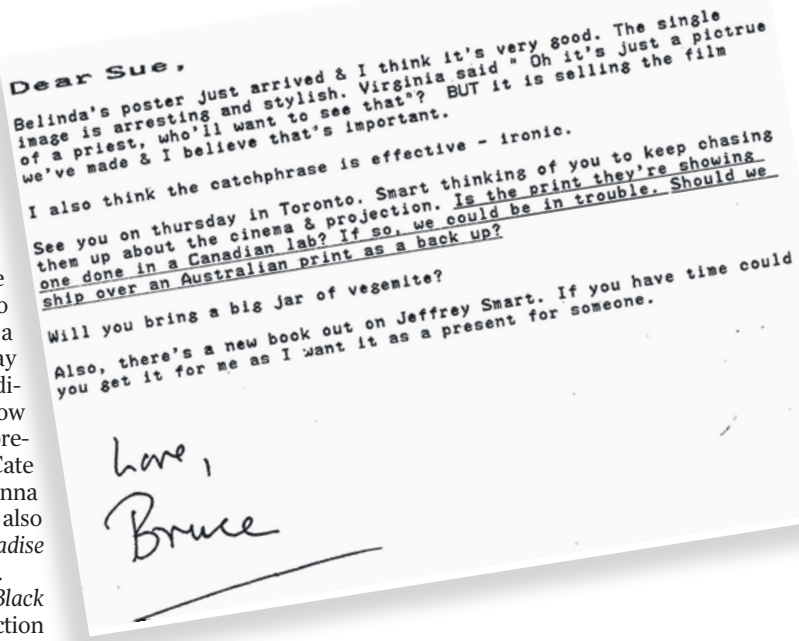 Dear Sue,
Belinda's poster just arrived & I think it's very good. The single
image is arresting and stylish. Virginia said " Oh it's just a pictrue
of a priest, who'll want to see that"? BUT it is selling the film
we've made & I believe that's important.
I also think the catchphrase is effective - ironic.
See you on thursday in Toronto. Smart thinking of you to keep chasing
them up about the cinema & projection. Is the print they're showing
one done in a Canadian lab? If so, we could be in trouble. Should we
ship over an Australian print as a back up?
Will you bring a big jar of vegemite?
Also, there's a new book out on Jeffrey Smart. If you have time could
you get it for me as I want it as a present for someone.
Love,
Bruce
a
di-
Cate
also
Black